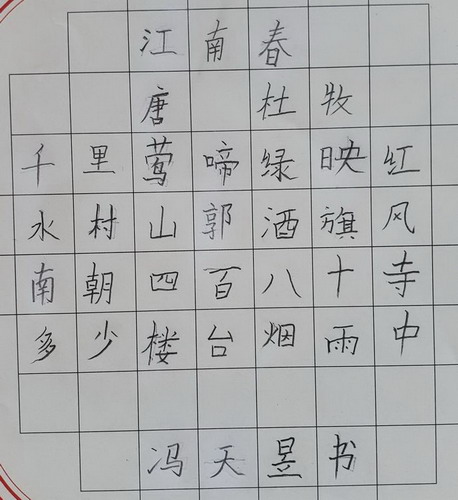 江南春
唐 杜牧
千里莺啼绿映红
水村山郭酒旗风
南朝四百八十寺
多少楼台烟雨中
冯天昱书